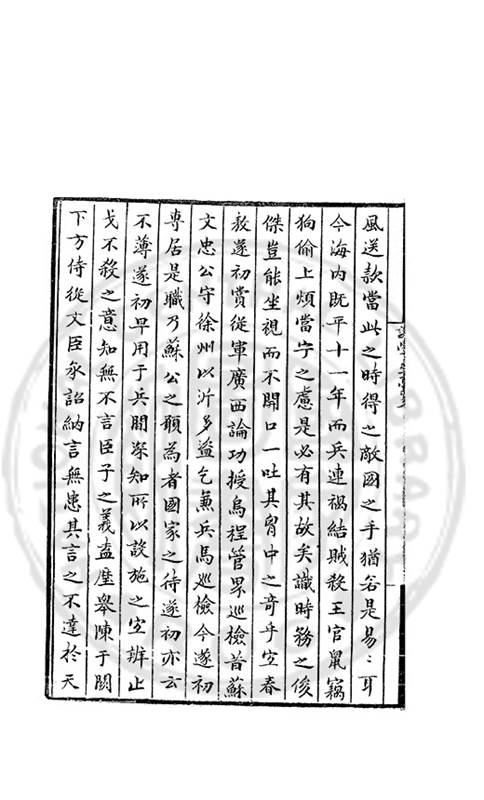 風送款當此之時得之敵國之手猶若是易〻耳
今海內既平十一年而兵連禍結賊殺王官鼠竊
狗偷上煩當宁之慮是必有其故矣識時務之俊
傑豈能坐視而不開口一吐其胷中之奇乎宜春
敖遂初嘗從軍廣西論功授烏程管界巡檢昔蘇
文忠公守徐州以沂多盜乞兼兵馬巡檢今遂初
專居是職乃蘇公之願為者國家之待遂初亦云
不薄遂初早用于兵間深知所以設施之宜辨止
戈不殺之意知無不言臣子之義盍歷舉陳于闕
下方侍從文臣承詔納言無患其言之不達於天